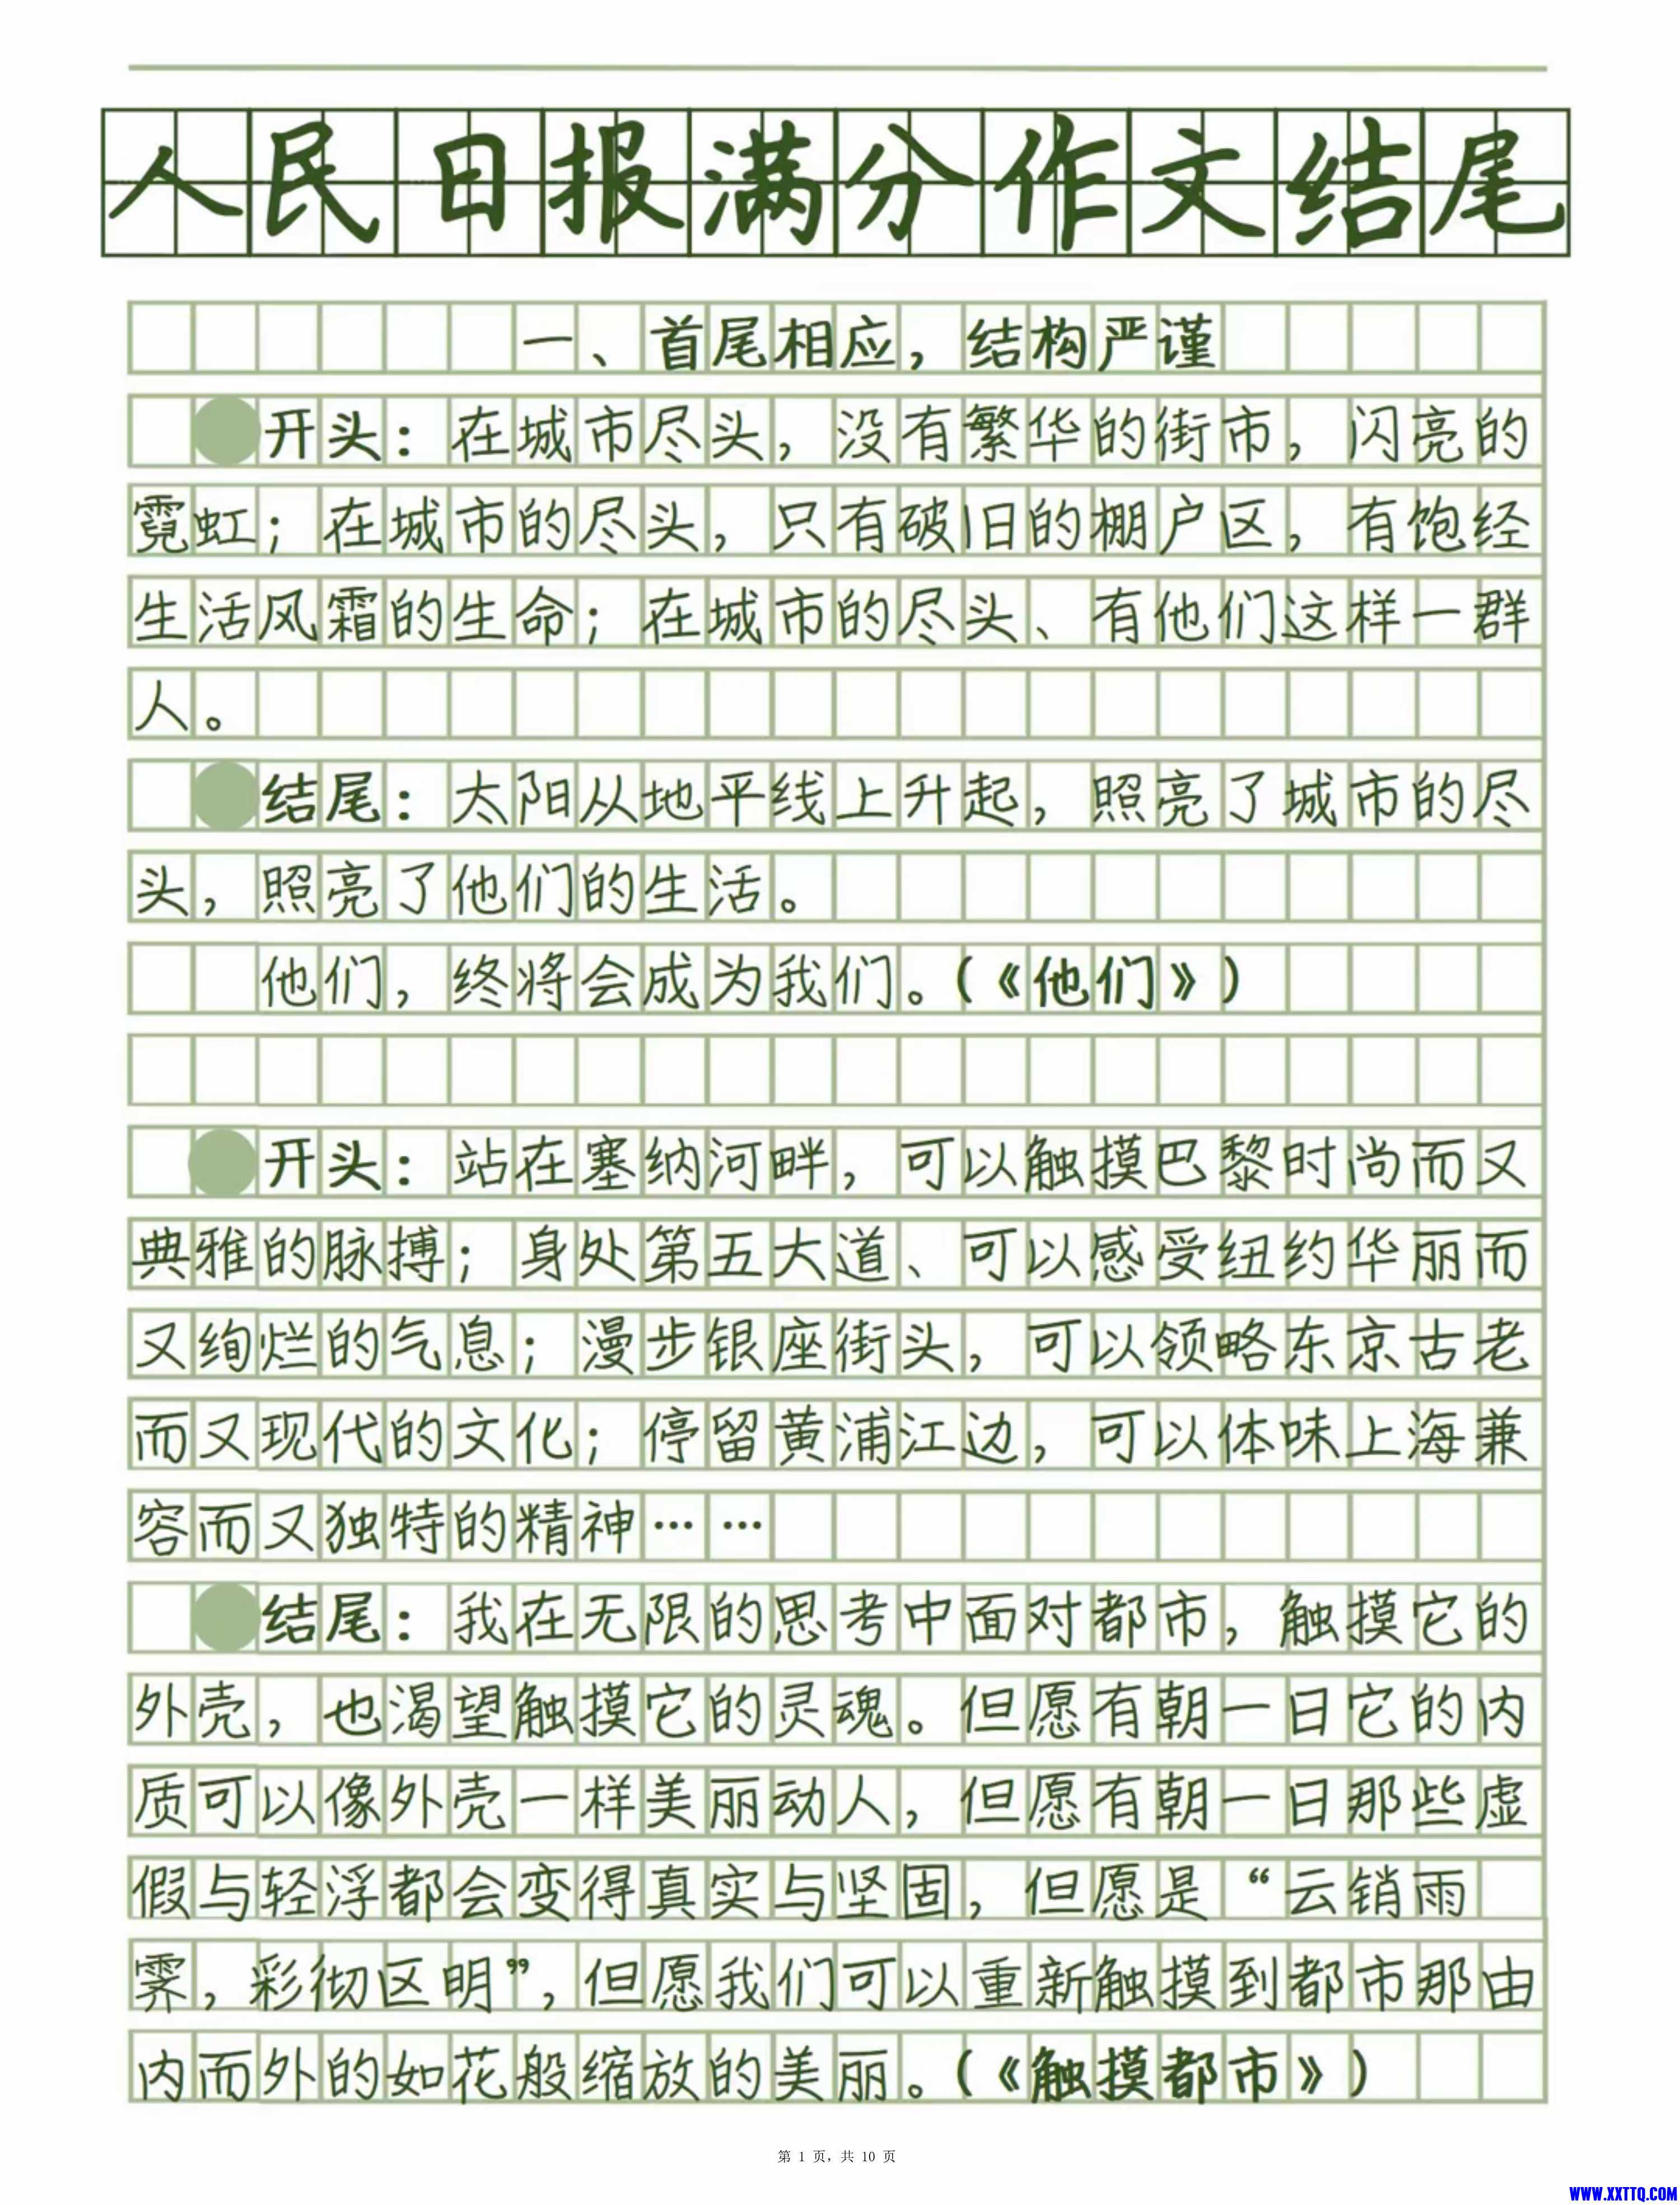 人民日报满分作文结尾
一、首尾相应，结构严谨
开头：在城市尽头，没有繁华的街市，闪亮的
霓虹；在城市的尽头，只有破旧的棚户区，有饱经
生活风霜的生命；在城市的尽头、有他们这样一群
人。
结尾：太阳从地平线上升起，照亮了城市的尽
头，照亮了他们的生活。
他们，终将会成为我们。（《他们》）
开头：站在塞纳河畔，可以触摸巴黎时尚而又
典雅的脉搏；身处第五大道、可以感受纽约华丽而
又绚烂的气息；漫步银座街头，可以领略东京古老
而又现代的文化；停留黄浦江边，可以体味上海兼
容而又独特的精神……
结尾：我在无限的思考中面对都市，触摸它的
外壳，也渴望触摸它的灵魂。但愿有朝一日它的内
质可以像外壳一样美丽动人，但愿有朝一日那些虚
假与轻浮都会变得真实与坚固，但愿是“云销雨
霁，彩彻区明”，但愿我们可以重新触摸到都市那由
内而外的如花般缩放的美丽。（《触摸都市》）
第 1 页，共 10 页
WWW.XXTTQ.COM